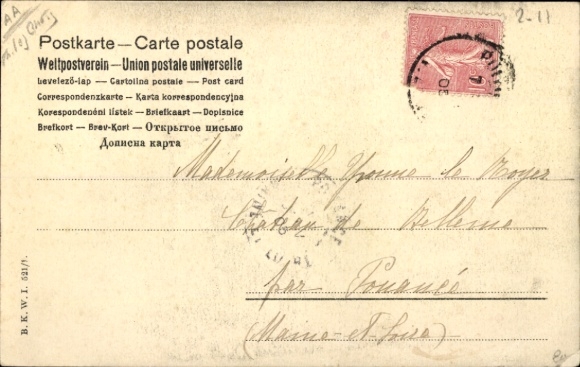 AA
2-11
Postkarte — Carte postale
Weltpostverein — Union postale universelle
Levelező-lap — Cartolina postale — Post card
Correspondenzkarte — Karta korrespondencyjna
Korespondenéni lístek — Briefkaart — Dopisnice
Brefkort — Brev-Kort — Открытое письмо
Дописна карта
Mademoiselle Yvonne le Royer
Château de Bellème
par Pouancé
(Maine-et-Loire)
B. K. W. I. 521/1.